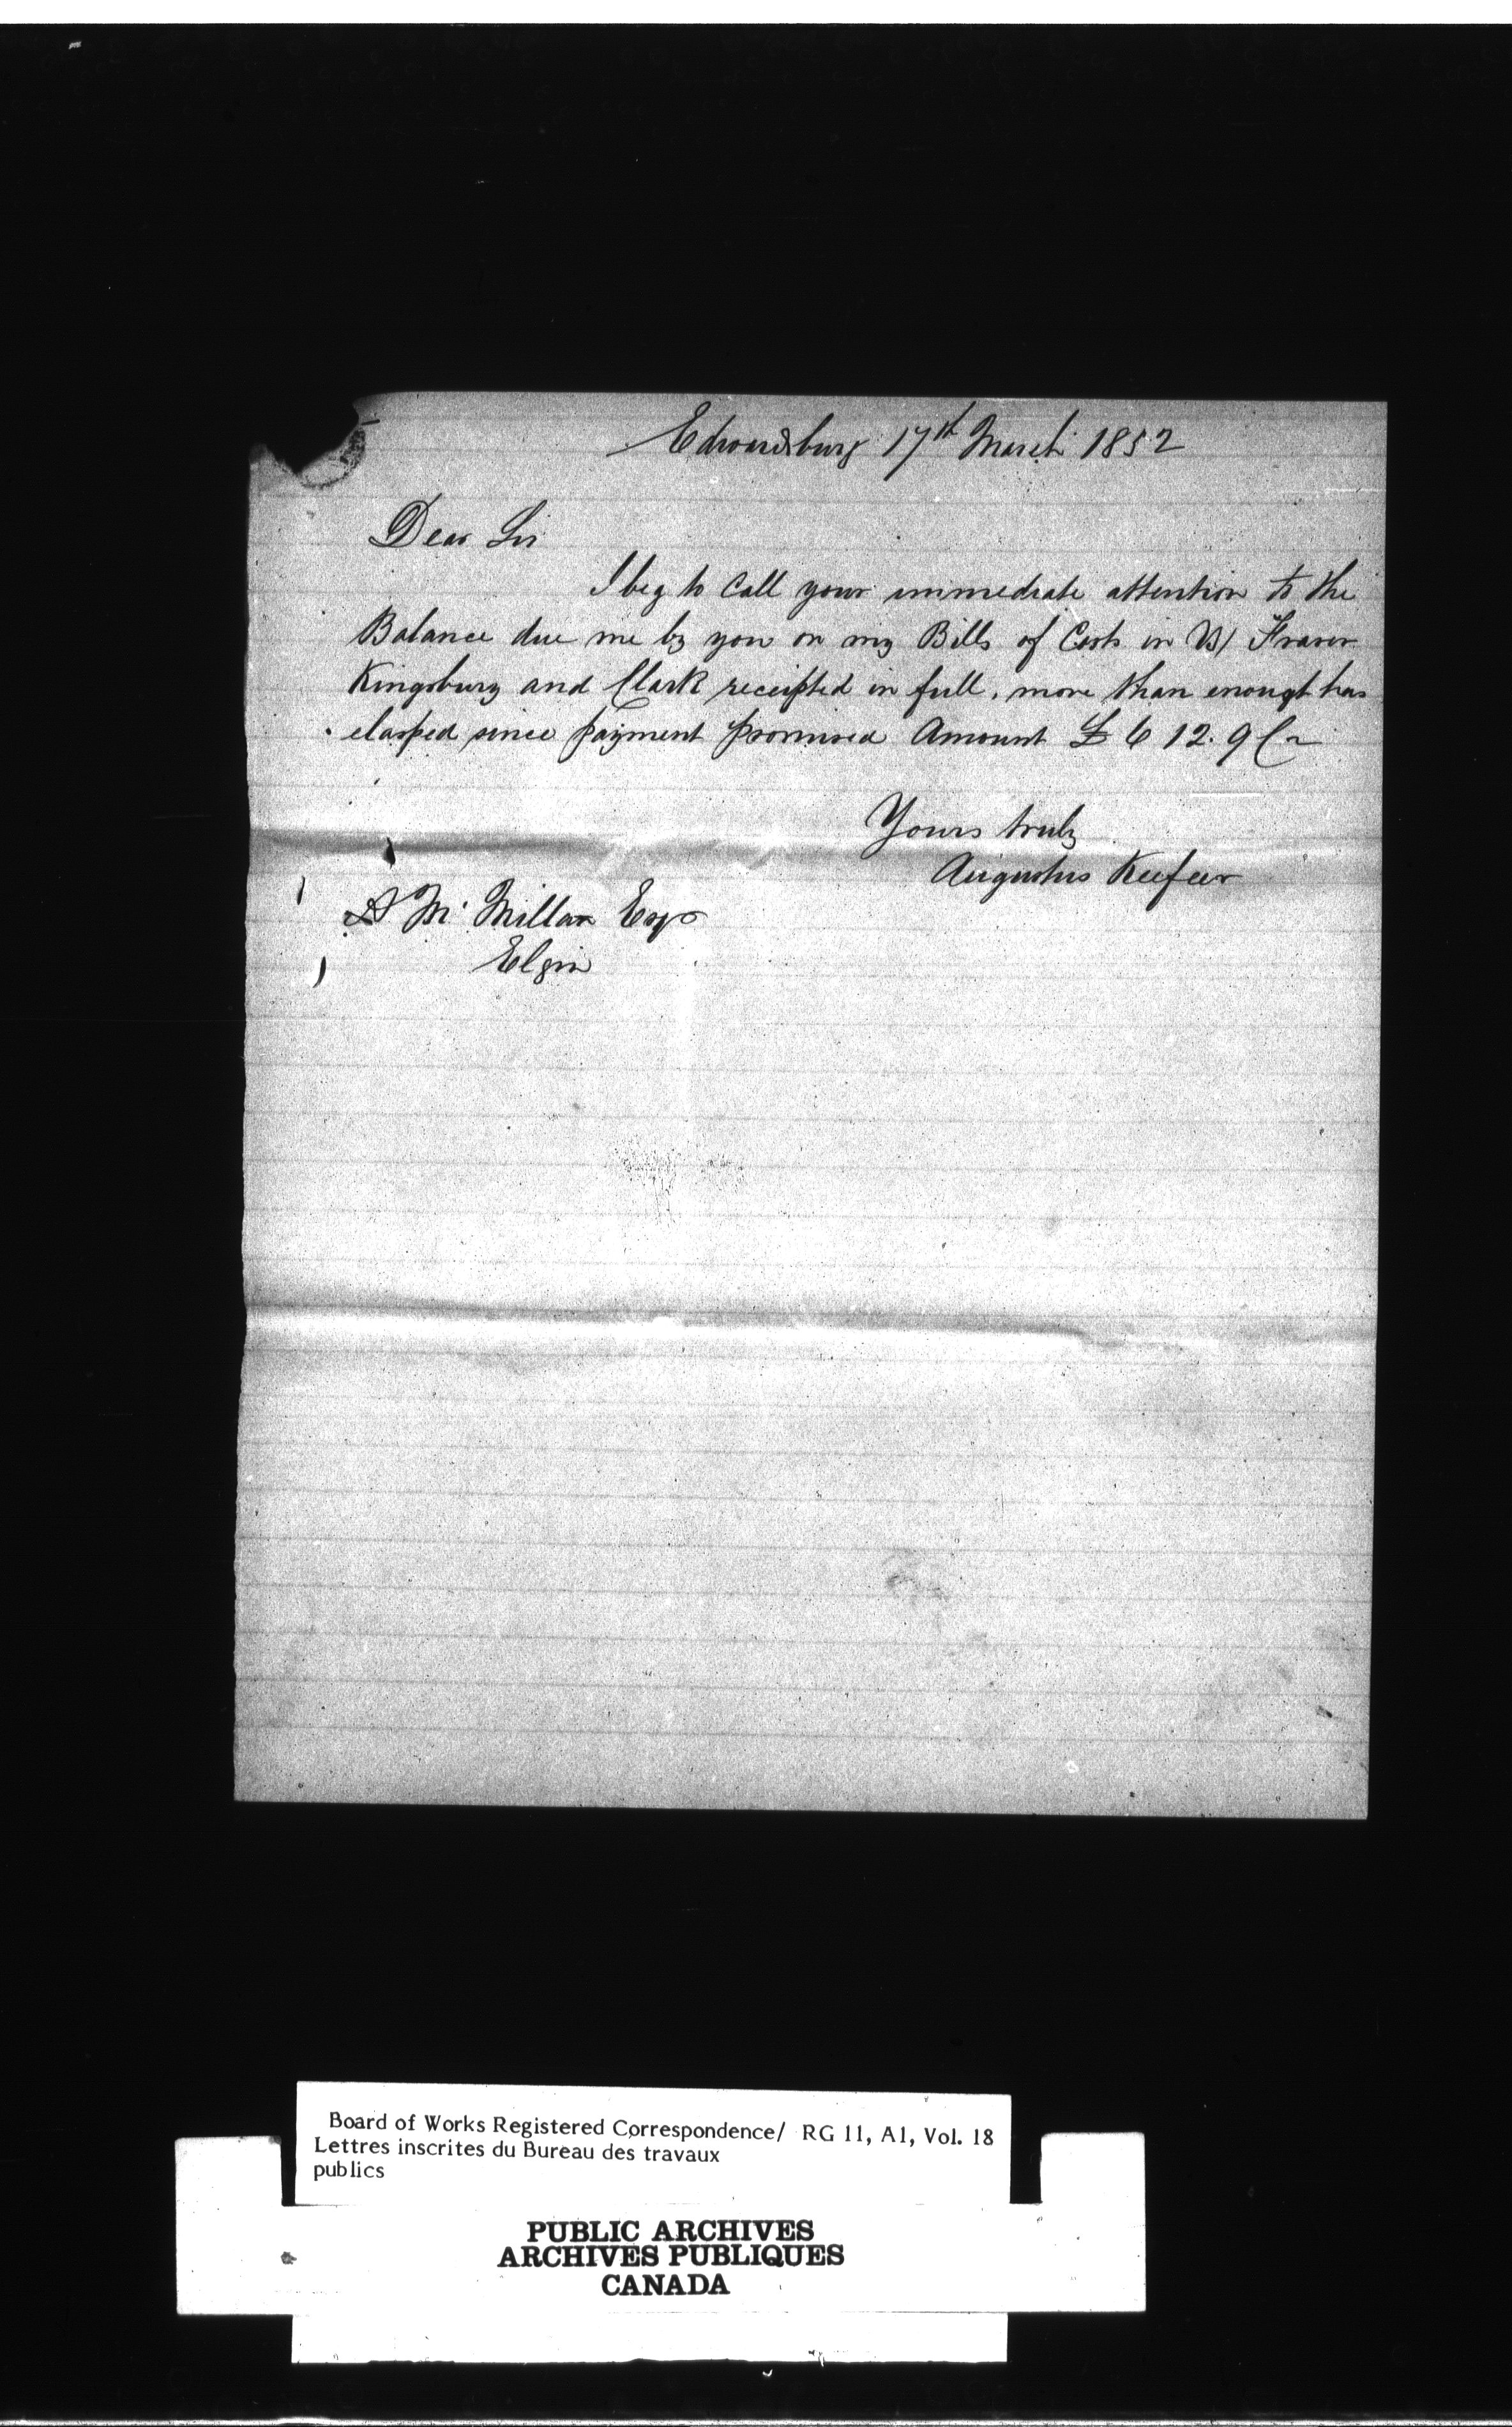 Edwardsburg 17th March 1852
Dear Sir
I beg to Call your immediate attention to the
Balance due me by you on my Bills of Costs in Vs/ Fraser
Kingsbury and Clark receipted in full, more than enough has
elasped since payment promised Amount £ 6 12. 9
Yours truly
Augustus Keefer
Mc Millan Esq
Elgin
Board of Works Registered Correspondence/ RG 11, A1, Vol. 18
Lettres inscrites du Bureau des travaux
publics
PUBLIC ARCHIVES
ARCHIVES PUBLIQUES
CANADA